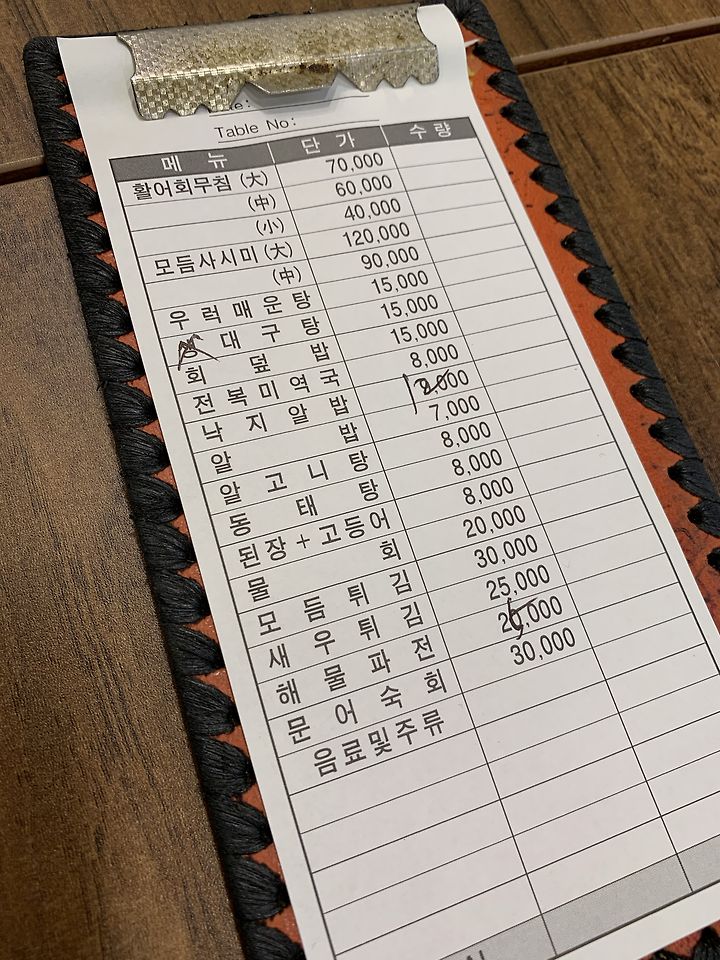 Table No:
메 뉴 단 가 수 량
활어회무침 (大) 70,000
(中) 60,000
(小) 40,000
모듬사시미 (大) 120,000
(中) 90,000
우럭매운탕 15,000
대구탕 15,000
회덮밥 15,000
전복미역국 8,000
낙지알밥 12,000
알밥 7,000
알고니탕 8,000
동태탕 8,000
된장+고등어 8,000
물회 20,000
모듬튀김 30,000
새우튀김 25,000
해물파전
문어숙회 30,000
음료및주류